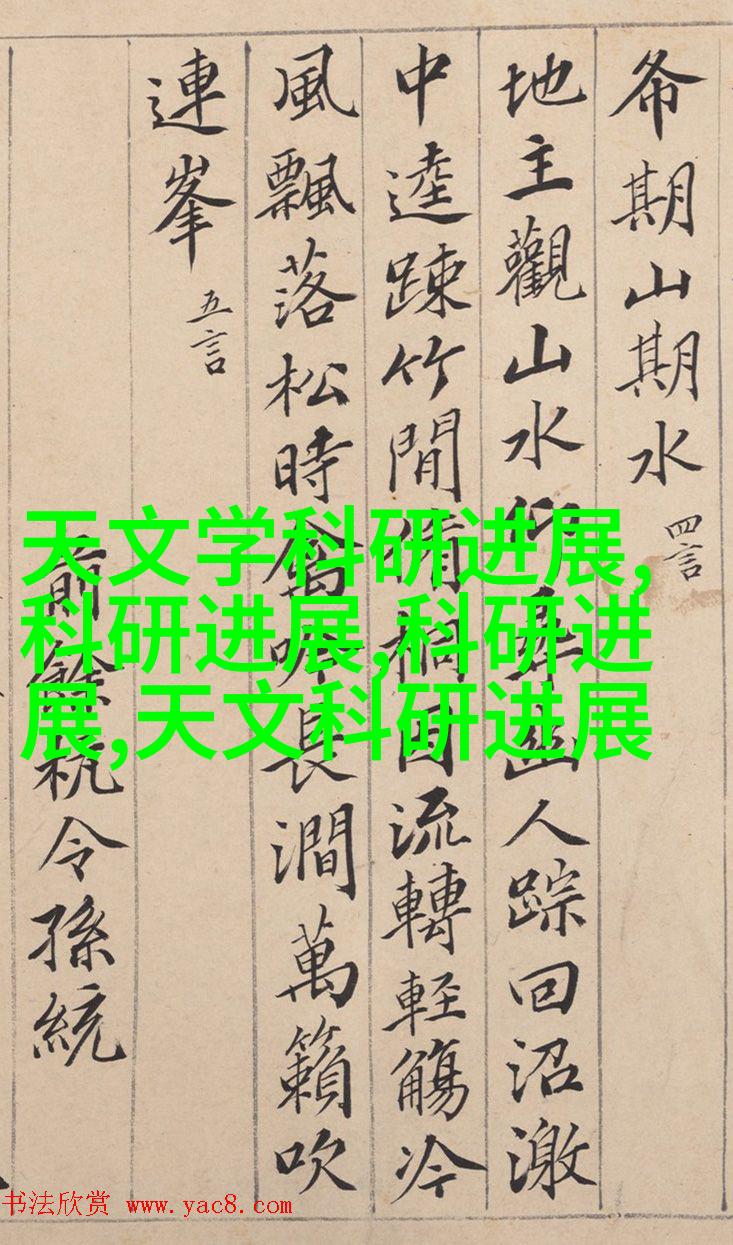 希期山期水 四言
地主觀山水仰尋幽人踪回沼激
中逵踈竹間脩桐因流轉輕觴冷
風飄落松時禽吟長澗萬籟吹
連峯 五言
前餘杭令孫統
天文学科研进展,
科研进展,科研进
展,天文科研进展
书法欣赏 www.yac8.com